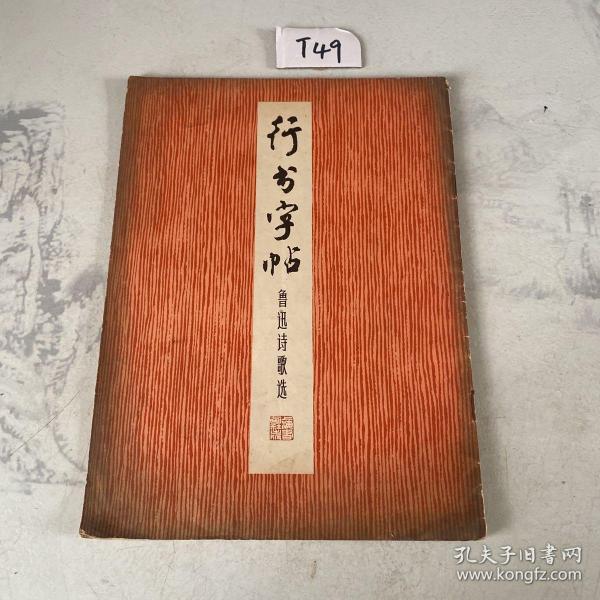 T49
行书字帖
鲁迅诗歌选
孔夫子旧书网
www.kongfz.com